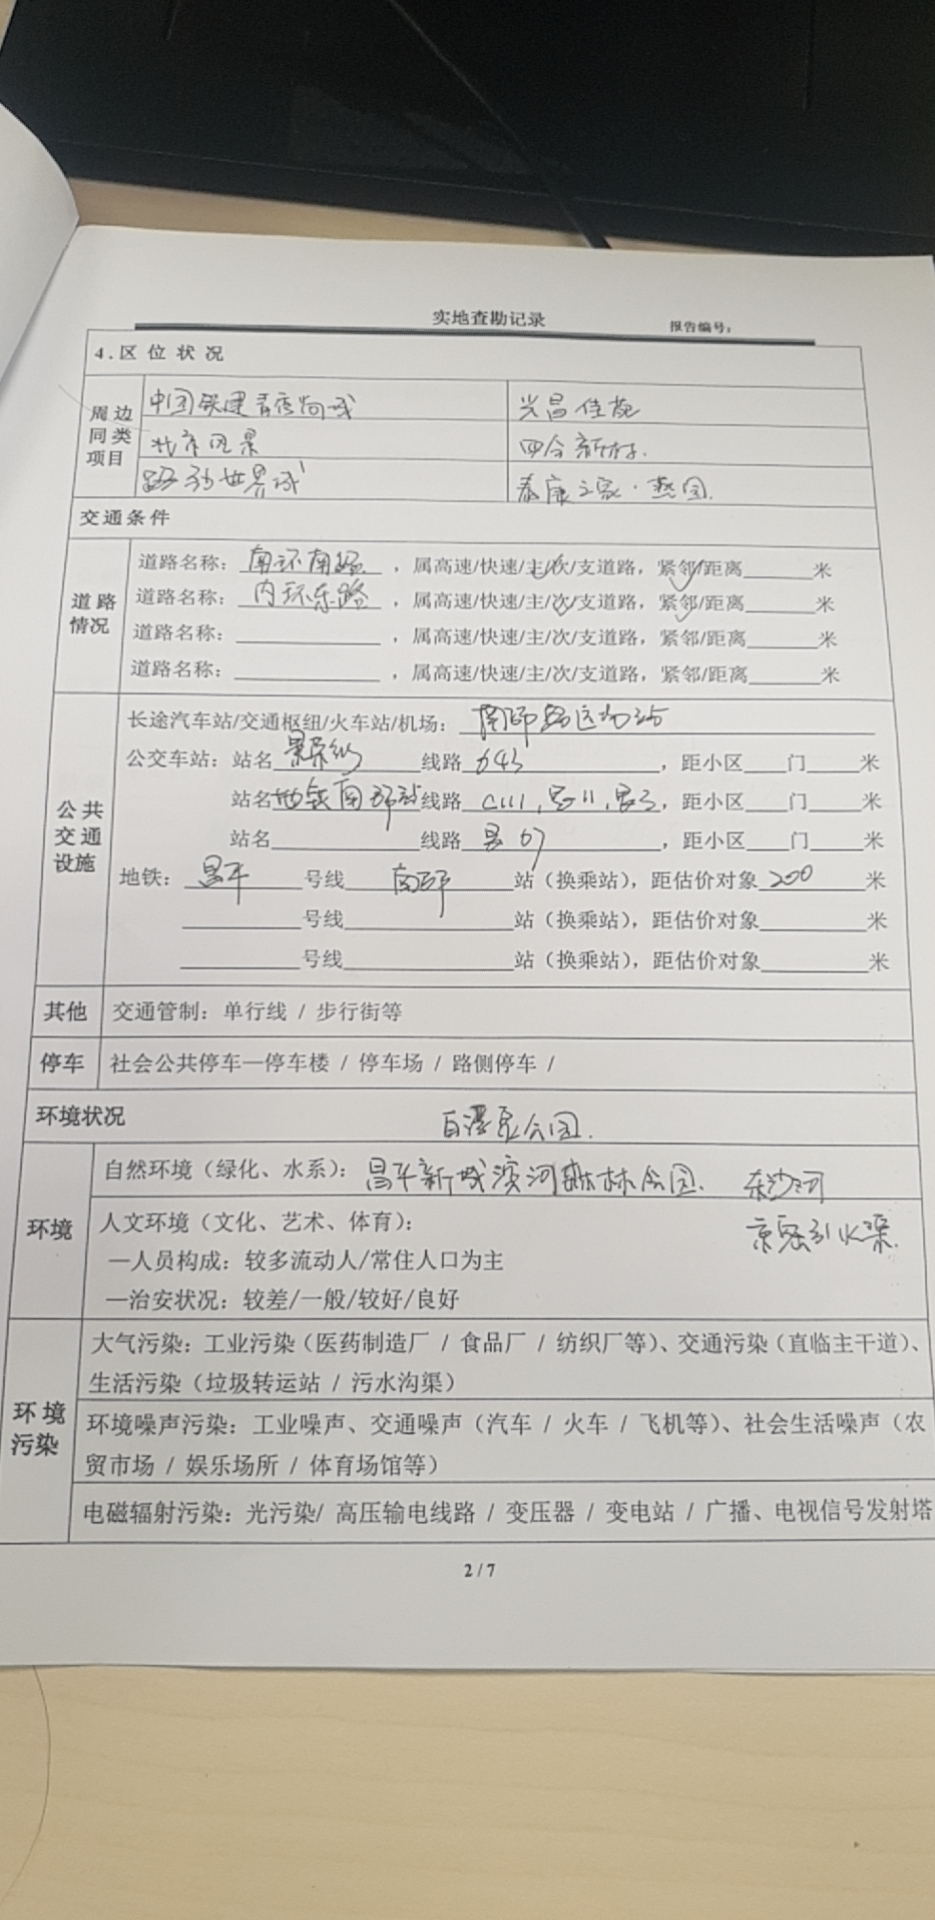 实地查勘记录
报告编号：
4.区位状况
周边同类项目
中国铁建青秀尚城 兴昌佳苑
北京风景 四合新村.
路劲世界城 泰康之家·燕园.
交通条件
道路情况
道路名称：南环南路，属高速/快速/主/次/支道路，紧邻/距离____米
道路名称：内环东路，属高速/快速/主/次/支道路，紧邻/距离____米
道路名称：____，属高速/快速/主/次/支道路，紧邻/距离____米
道路名称：____，属高速/快速/主/次/支道路，紧邻/距离____米
公共交通设施
长途汽车站/交通枢纽/火车站/机场：南邵
公交车站：站名____线路643，距小区____门____米
站名地铁南邵站线路C111、昌11、昌3，距小区____门____米
站名____线路昌67，距小区____门____米
地铁：昌平号线南邵站（换乘站），距估价对象200米
____号线____站（换乘站），距估价对象____米
____号线____站（换乘站），距估价对象____米
其他 交通管制：单行线 / 步行街等
停车 社会公共停车—停车楼 / 停车场 / 路侧停车 /
环境状况 白浮泉公园.
环境
自然环境（绿化、水系）：昌平新城滨河森林公园. 东沙河
人文环境（文化、艺术、体育）： 京密引水渠.
—人员构成：较多流动人/常住人口为主
—治安状况：较差/一般/较好/良好
环境污染
大气污染：工业污染（医药制造厂 / 食品厂 / 纺织厂等）、交通污染（直临主干道）、
生活污染（垃圾转运站 / 污水沟渠）
环境噪声污染：工业噪声、交通噪声（汽车 / 火车 / 飞机等）、社会生活噪声（农
贸市场 / 娱乐场所 / 体育场馆等）
电磁辐射污染：光污染/ 高压输电线路 / 变压器 / 变电站 / 广播、电视信号发射塔
2 / 7